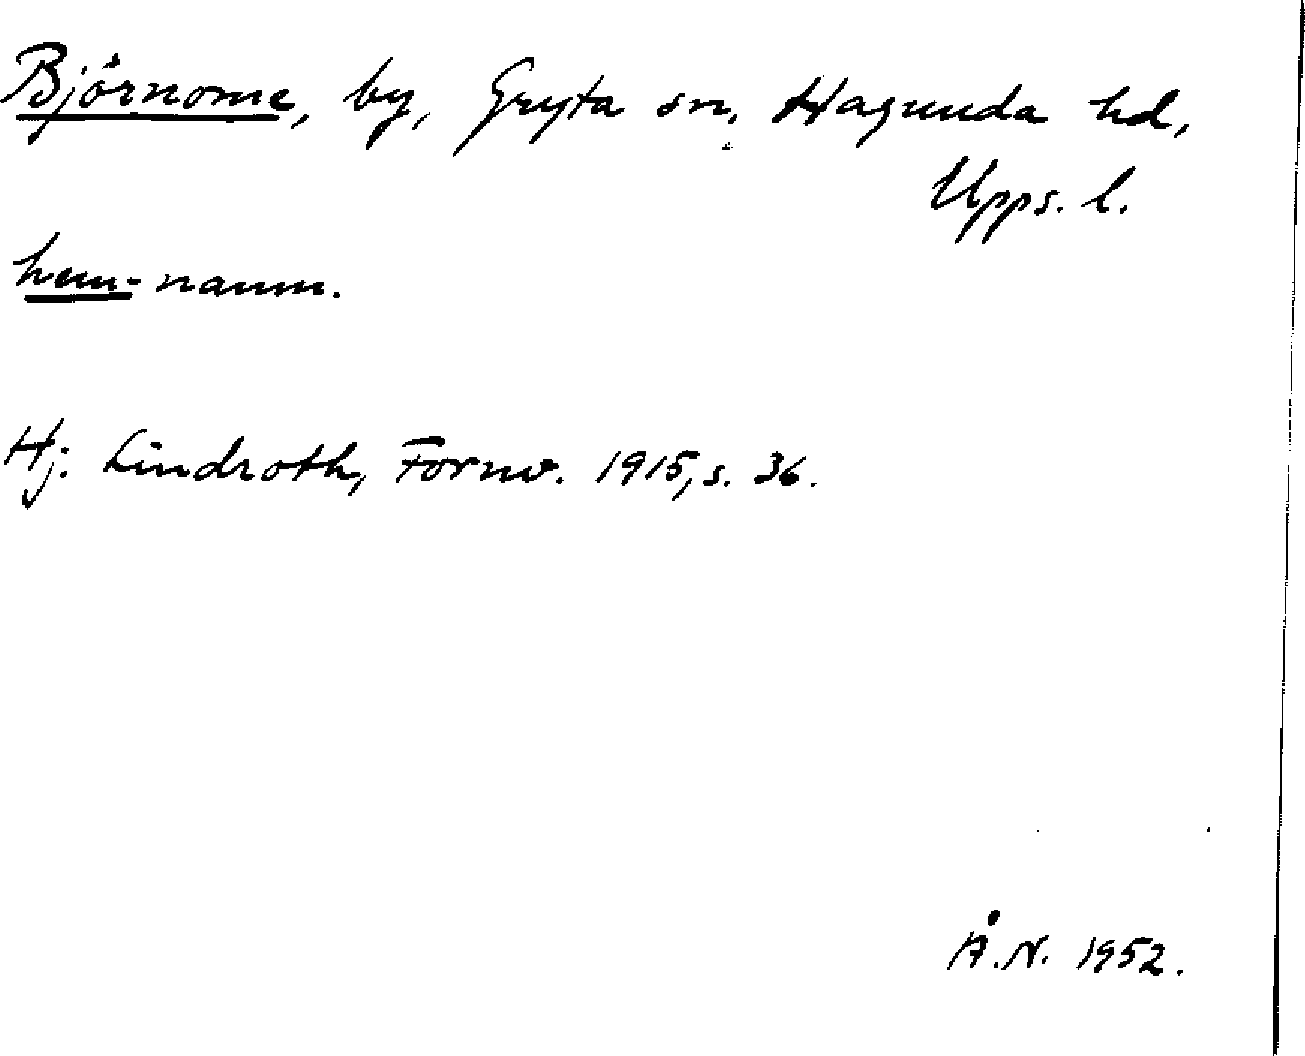 Björnome, by, Gryta sn, Hagunda hd,
Upps. l.
hem-namn.
Hj. Lindroth, Fornv. 1915, s. 36.
Å.N. 1952.